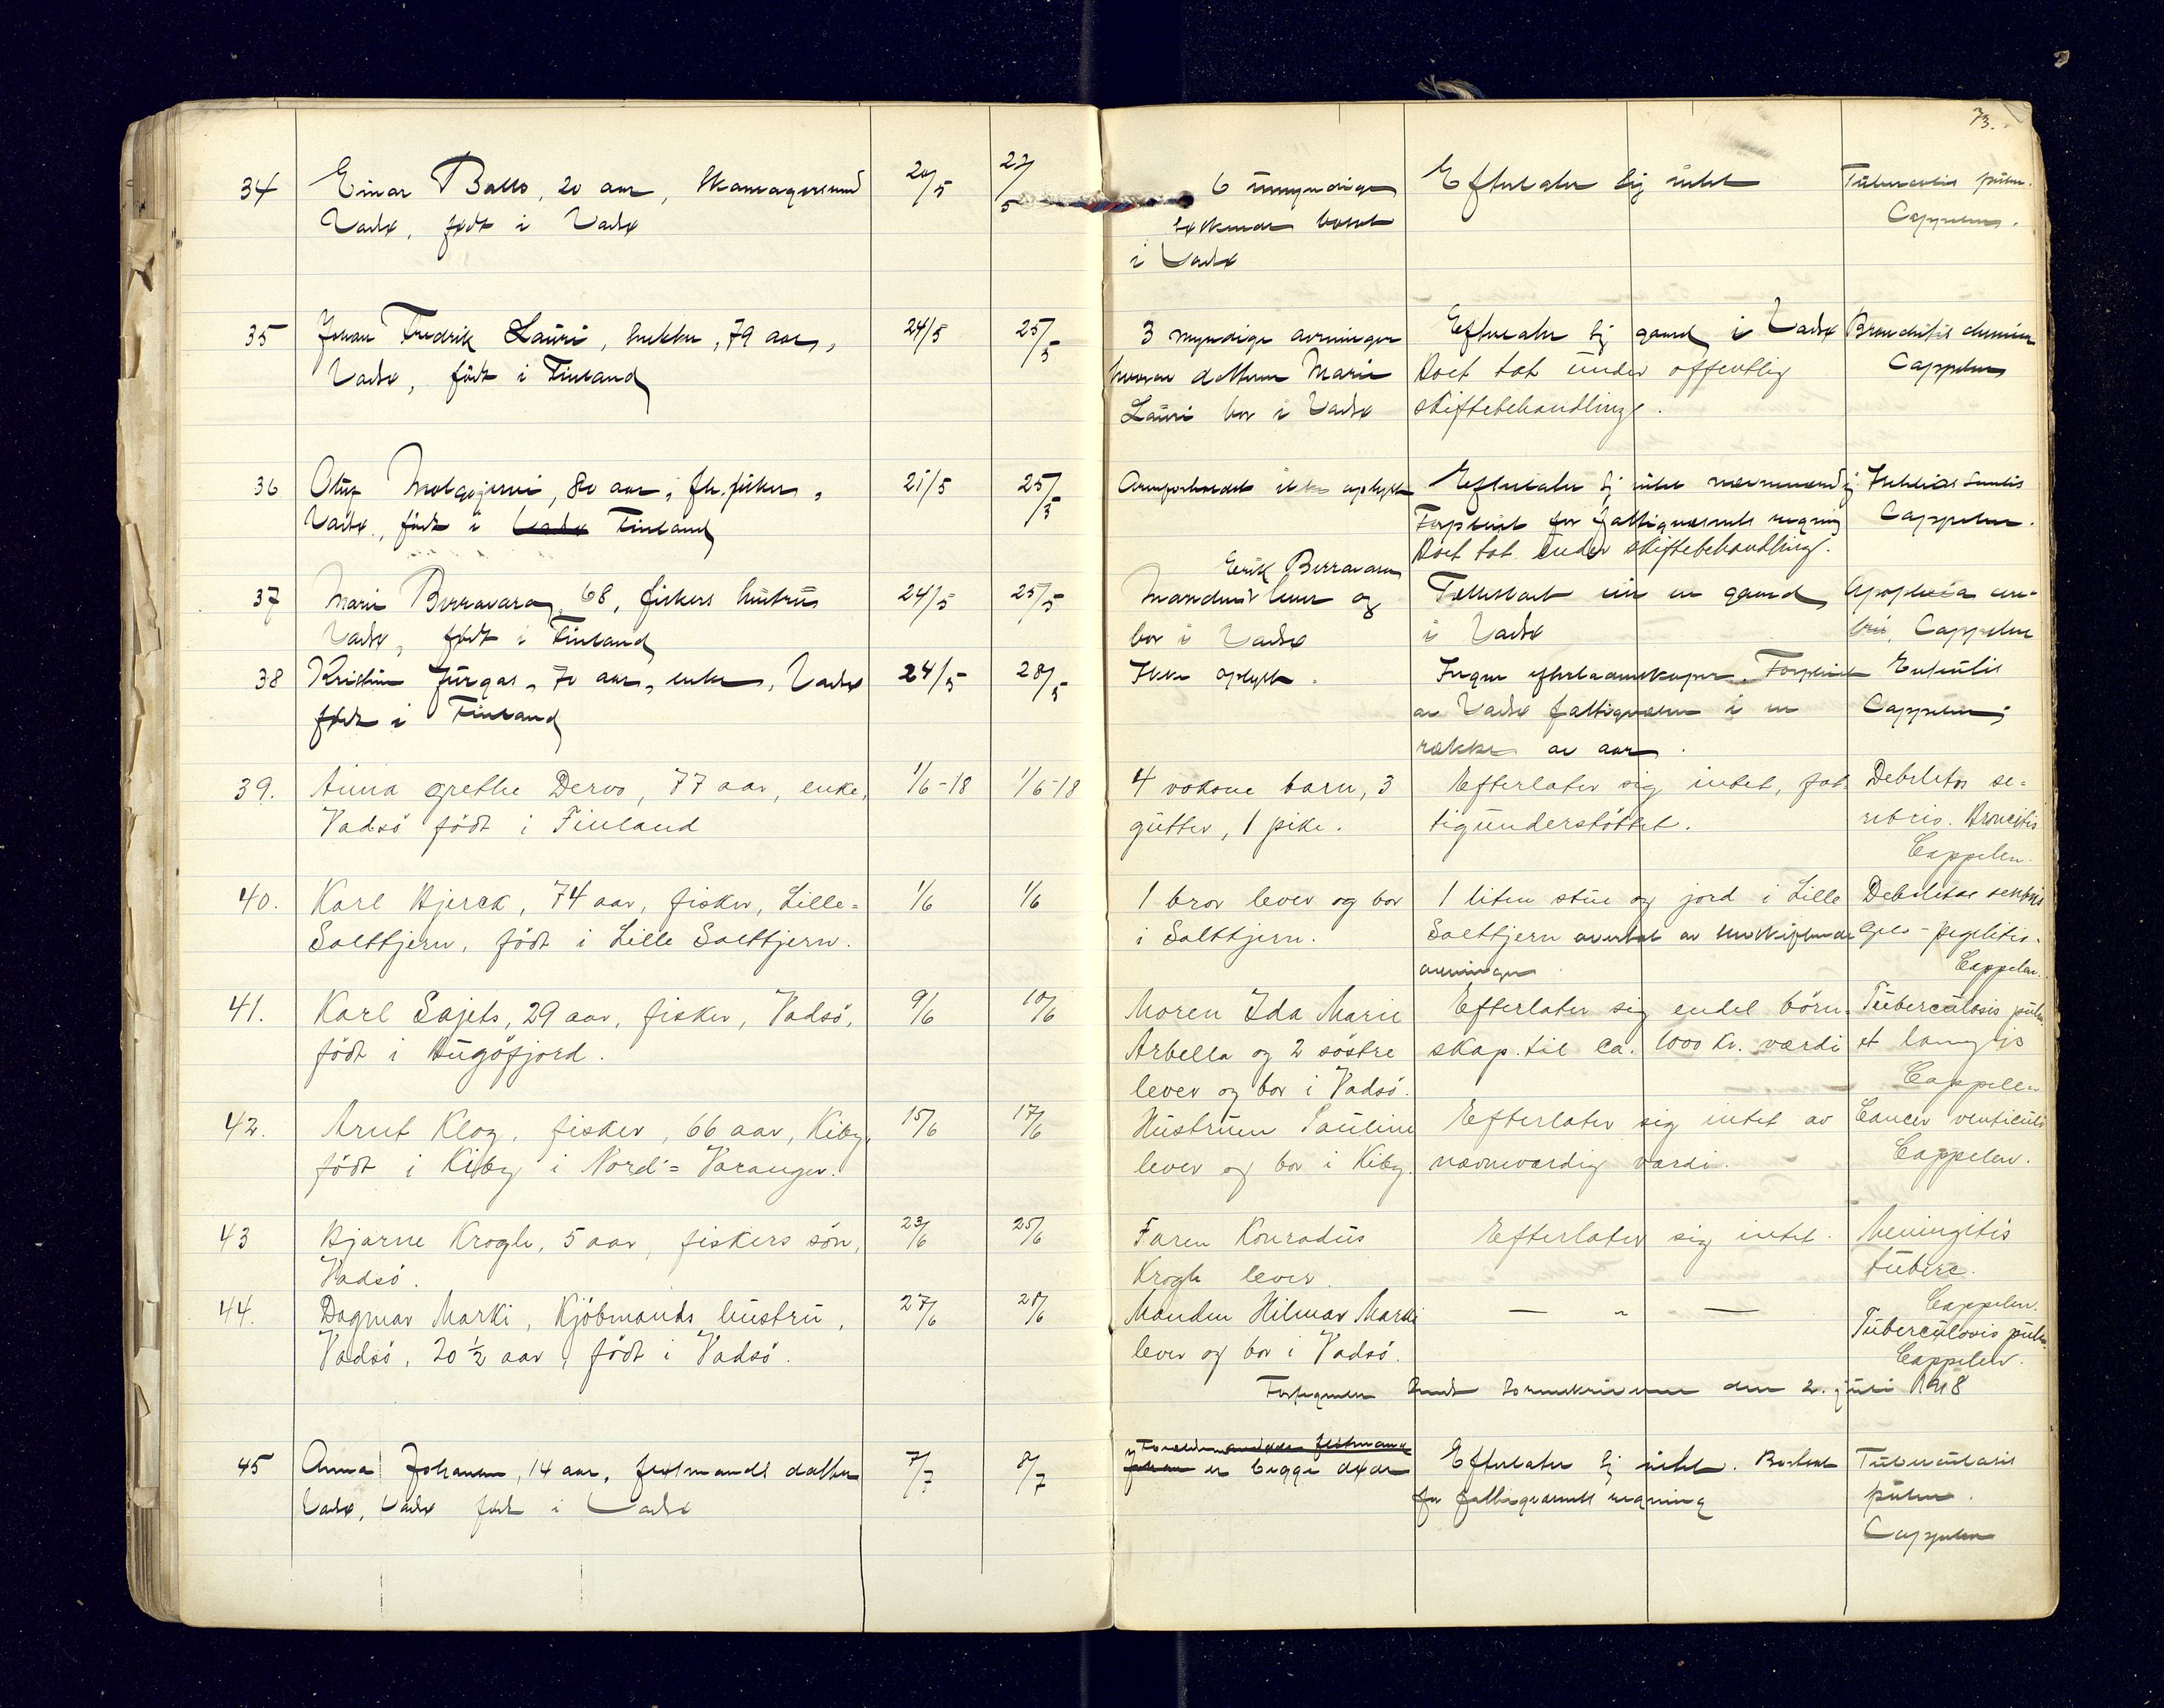 73.
34 Einar Ballo, 20 aar, 20/5 22/5 6 umyndige Efterlater sig intet Tuberculosis pulm.
Vadsø, født i Vadsø søskende bosat Cappelen.
i Vadsø
35 Johan Fredrik Lauri, 79 aar, 24/5 25/5 3 myndige arvinger Efterlater sig gaard i Vadsø Bronchitis
Vadsø, født i Finland hvorav datteren Marie Boet tat under offentlig Cappelen
Lauri bor i Vadsø skiftebehandling.
36 80 aar, fh. fisker, 21/5 25/5 Arveforholdet ikke oplyst Efterlater sig intet nævneværdig
Vadsø, født i Vadsø Finland Forpleiet for fattigvæsenets regning Cappelen.
Boet tat under skiftebehandling.
Erik Birravara
37 Marie Birravara, 68, fiskers hustru 24/5 25/5 Manden lever og en gaard Apoplexia cere-
Vadsø, født i Finland bor i Vadsø i Vadsø bri, Cappelen
38 Kristine Jurgas, 70 aar, enke, Vadsø 24/5 28/5 Ikke oplyst. Ingen efterladenskaper. Forpleiet
født i Finland av Vadsø fattigvæsen i en Cappelen
række av aar.
39. Anna Grethe Dervo, 77 aar, enke, 1/6-18 1/6-18 4 voksne barn, 3 Efterlater sig intet, fat- Debilitas se-
Vadsö födt i Finland gutter, 1 pike. tigunderstöttet. Broncitis
Cappelen.
40. Karl Bjerck, 74 aar, fisker, Lille= 1/6 1/6 1 bror lever og bor 1 liten stue og jord i Lille Debilitas senilis
Salttjern, födt i Lille Salttjern. i Salttjern. Salttjern overtat av
arvinger Cappelen.
41. Karl Sajets, 29 aar, fisker, Vadsö, 9/6 10/6 Moren Ida Marie Efterlater sig endel börn- Tuberculosis pulm.
födt i Bugöfjord. Arbella og 2 söstre skap. til ca. 1000 kr. værdi et laryngis
lever og bor i Vadsö. Cappelen
42. Arnt Klog, fisker, 66 aar, Kiby, 15/6 17/6 Hustruen Pauline Efterlater sig intet av Cancer ventriculi
födt i Kiby i Nord=Varanger. lever og bor i Kiby. nævneværdig værdi. Cappelen.
43 Bjarne Krogh, 5 aar, fiskers sön, 23/6 25/6 Faren Konradus Efterlater sig intet. Meningitis
Vadsö. Krogh lever. tuberc.
Cappelen.
44. Dagmar Marki, Kjöbmands hustru, 27/6 28/6 Manden Hilmar Marki — " — Tuberculosis pulm.
Vadsö, 20 ½ aar, födt i Vadsö. lever og bor i Vadsö. Cappelen.
Fortegnelse sendt sorenskriveren den 2. juli 1918
45 Anna Johansen, 14 aar, datter 7/7 8/7 er begge døde Efterlater sig intet. Bortsat Tuberculosis
Vadsø, Vadsø født i Vadsø for fattigvæsenets regning pulm.
Cappelen